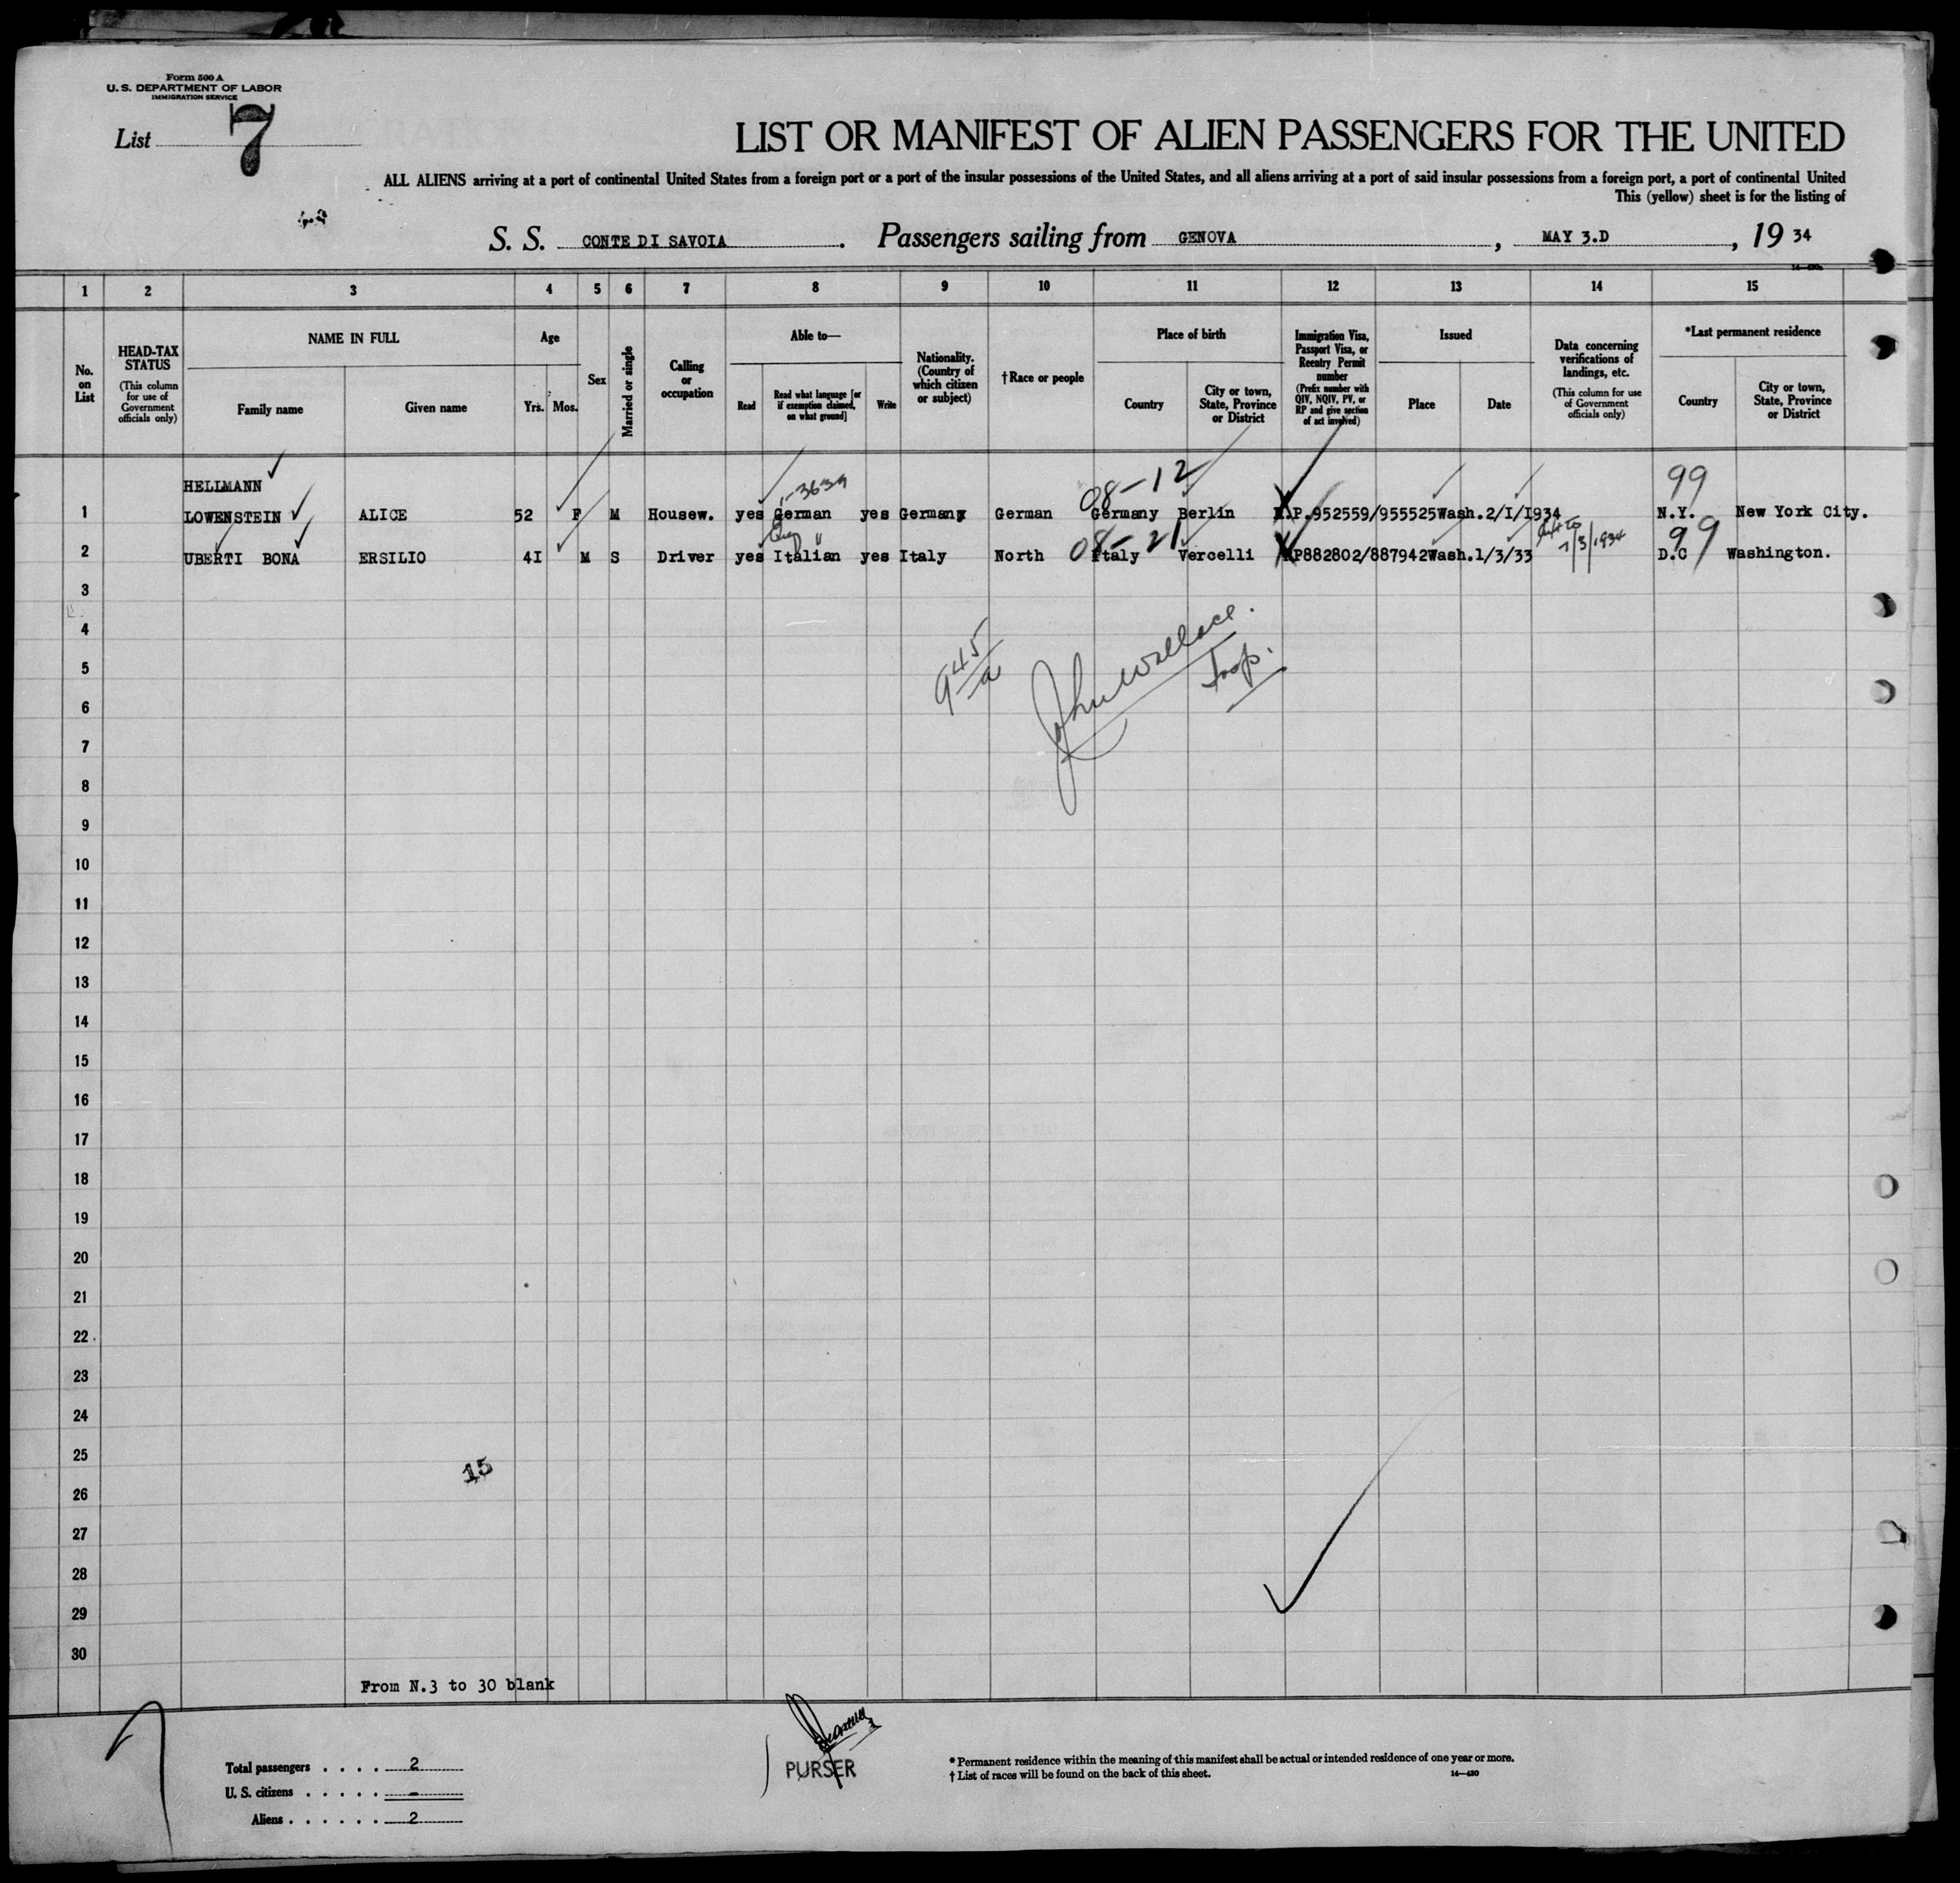 Form 500 A
U. S. DEPARTMENT OF LABOR
IMMIGRATION SERVICE
List 7
LIST OR MANIFEST OF ALIEN PASSENGERS FOR THE UNITED
ALL ALIENS arriving at a port of continental United States from a foreign port or a port of the insular possessions of the United States, and all aliens arriving at a port of said insular possessions from a foreign port, a port of continental United
This (yellow) sheet is for the listing of
S. S. CONTE DI SAVOIA. Passengers sailing from GENOVA, MAY 3.D, 19 34
1 2 3 4 5 6 7 8 9 10 11 12 13 14 15
No. on List
HEAD-TAX STATUS (This column for use of Government officials only)
NAME IN FULL
Family name
Given name
Age
Yrs. Mos.
Sex
Married or single
Calling or occupation
Able to—
Read
Read what language [or if exemption claimed, on what ground]
Write
Nationality. (Country of which citizen or subject)
†Race or people
Place of birth
Country
City or town, State, Province or District
Immigration Visa, Passport Visa, or Reentry Permit number (Prefix number with QIV, NQIV, PV, or RP and give section of act involved)
Issued
Place
Date
Data concerning verifications of landings, etc. (This column for use of Government officials only)
*Last permanent residence
Country
City or town, State, Province or District
HELLMANN 08-12 99
1 LOWENSTEIN ALICE 52 F M Housew. yes German yes Germany German Germany Berlin R.P.952559/955525 Wash. 2/I/I934 N.Y. New York City.
08-21 7/3/1934 99
2 UBERTI BONA ERSILIO 4I M S Driver yes Italian yes Italy North Italy Vercelli RP882802/887942 Wash. 1/3/33 D.C Washington.
3
4
5
6
7
8
9
10
11
12
13
14
15
16
17
18
19
20
21
22
23
24
25
26
27
28
29
30
945/a
John Wallace.
Insp.
15
From N.3 to 30 blank
Total passengers . . . . 2
U. S. citizens . . . . . -
Aliens . . . . . . 2
PURSER
* Permanent residence within the meaning of this manifest shall be actual or intended residence of one year or more.
† List of races will be found on the back of this sheet.
14—430